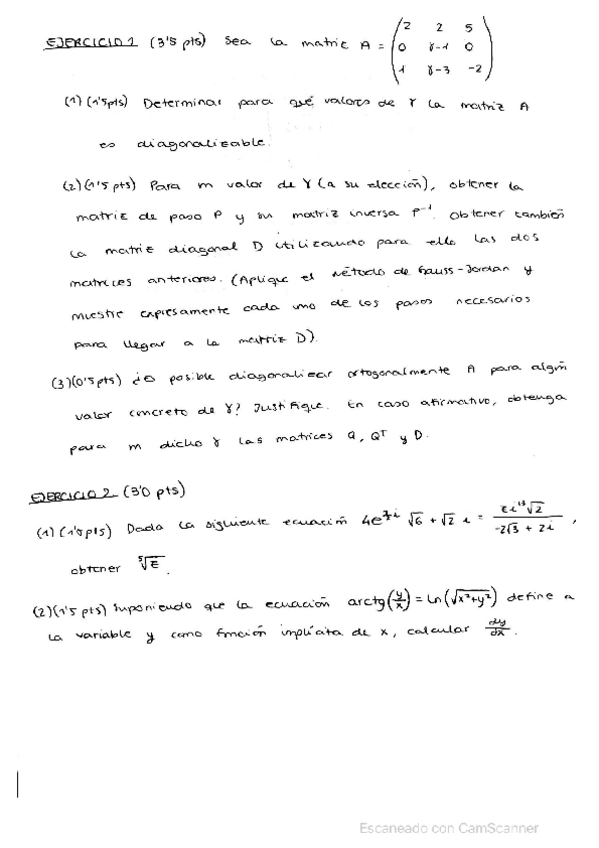 EJERCICIO 1 (3'5 pts) Sea la matriz A = (2 2 5
0 γ-1 0
1 γ-3 -2)
(1) (1'5pts) Determinar para qué valores de γ la matriz A
es diagonalizable.
(2) (1'5 pts) Para un valor de γ (a su elección), obtener la
matriz de paso P y su matriz inversa P⁻¹. Obtener también
la matriz diagonal D utilizando para ello las dos
matrices anteriores. (Aplique el método de Gauss-Jordan y
muestre expresamente cada uno de los pasos necesarios
para llegar a la matriz D).
(3) (0'5 pts) ¿Es posible diagonalizar ortogonalmente A para algún
valor concreto de γ? Justifique. En caso afirmativo, obtenga
para un dicho γ las matrices Q, Qᵀ y D.
EJERCICIO 2 (3'0 pts)
(1) (1'5 pts) Dada la siguiente ecuación √6 + √2 i = /-2√3 + 2i,
obtener ⁵√z.
(2) (1'5 pts) Suponiendo que la ecuación arctg(y/x) = ln(√x²+y²) define a
la variable y como función implícita de x, calcular dy/dx.
Escaneado con CamScanner